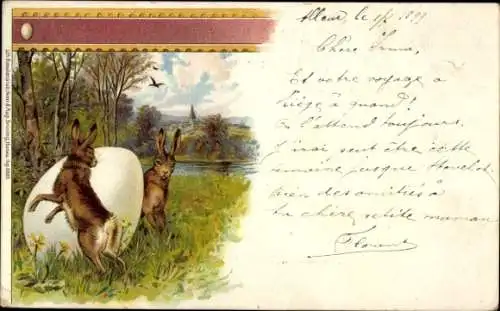 Alleur, le 8/4 1899
Chère Irma,
Et votre voyage à
Liège à quand?
on l'attend toujours.
J'irai peut être cette
semaine jusque
bien des amitiés à
ta chère petite maman
Florent